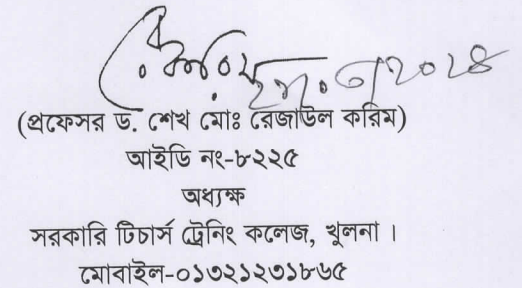 (প্রফেসর ড. শেখ মোঃ রেজাউল করিম)
আইডি নং-৮২২৫
অধ্যক্ষ
সরকারি টিচার্স ট্রেনিং কলেজ, খুলনা ।
মোবাইল-০১৩২১২৩১৮৬৫